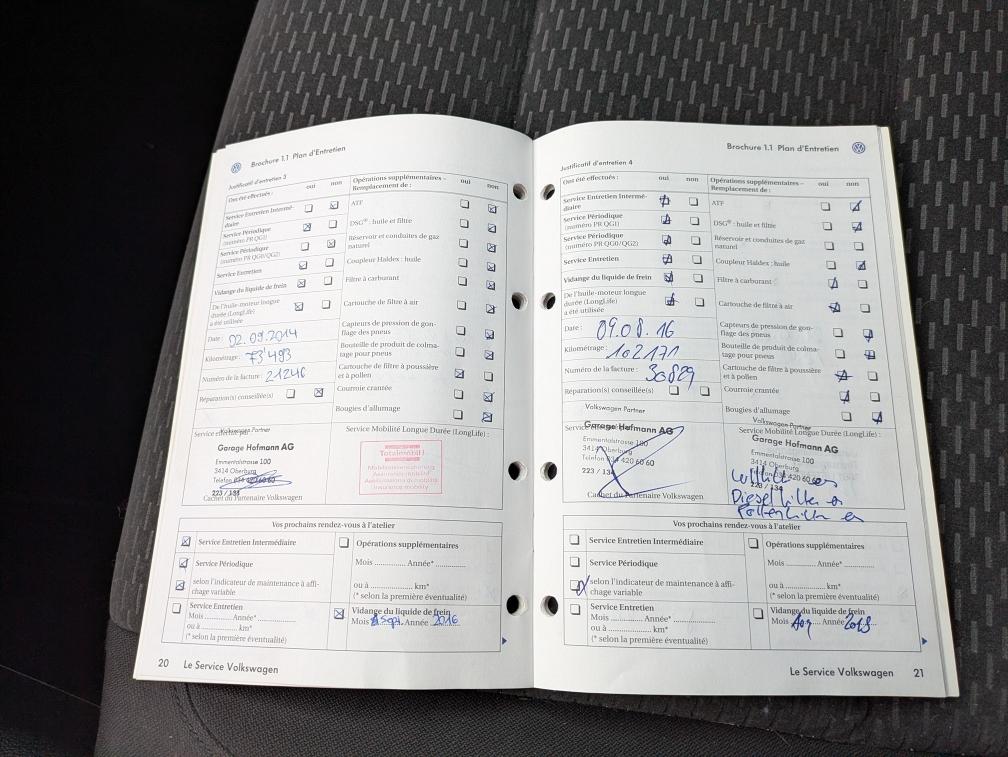 Brochure 1.1 Plan d'Entretien
Justificatif d'entretien 3
Ont été effectués : oui non
Service Entretien Intermé-
diaire
Service Périodique
(numéro PR QG1)
Service Périodique
(numéro PR QG0/QG2)
Service Entretien
Vidange du liquide de frein
De l'huile-moteur longue
durée (LongLife)
a été utilisée
Date : 02.09.2014
Kilométrage : 73'493
Numéro de la facture : 21246
Réparation(s) conseillée(s)
Opérations supplémentaires – oui non
Remplacement de :
ATF
DSG® : huile et filtre
Réservoir et conduites de gaz
naturel
Coupleur Haldex : huile
Filtre à carburant
Cartouche de filtre à air
Capteurs de pression de gon-
flage des pneus
Bouteille de produit de colma-
tage pour pneus
Cartouche de filtre à poussière
et à pollen
Courroie crantée
Bougies d'allumage
Service effectué par
Volkswagen Partner
Garage Hofmann AG
Emmentalstrasse 100
3414 Oberburg
Telefon 034 420 60 60
223 / 134
Cachet du Partenaire Volkswagen
Service Mobilité Longue Durée (LongLife) :
Totalmobil!
Vos prochains rendez-vous à l'atelier
Service Entretien Intermédiaire
Service Périodique
selon l'indicateur de maintenance à affi-
chage variable
Service Entretien
Mois ........... Année* ..............
ou à ................... km*
(* selon la première éventualité)
Opérations supplémentaires
Mois ............ Année* ..............
ou à ................... km*
(* selon la première éventualité)
Vidange du liquide de frein
Mois Sept. Année 2016
20 Le Service Volkswagen
Brochure 1.1 Plan d'Entretien
Justificatif d'entretien 4
Ont été effectués : oui non
Service Entretien Intermé-
diaire
Service Périodique
(numéro PR QG1)
Service Périodique
(numéro PR QG0/QG2)
Service Entretien
Vidange du liquide de frein
De l'huile-moteur longue
durée (LongLife)
a été utilisée
Date : 09.08.16
Kilométrage : 102171
Numéro de la facture : 30829
Réparation(s) conseillée(s)
Opérations supplémentaires – oui non
Remplacement de :
ATF
DSG® : huile et filtre
Réservoir et conduites de gaz
naturel
Coupleur Haldex : huile
Filtre à carburant
Cartouche de filtre à air
Capteurs de pression de gon-
flage des pneus
Bouteille de produit de colma-
tage pour pneus
Cartouche de filtre à poussière
et à pollen
Courroie crantée
Bougies d'allumage
Volkswagen Partner
Garage Hofmann AG
Emmentalstrasse 100
3414 Oberburg
Telefon 034 420 60 60
223 / 134
Cachet du Partenaire Volkswagen
Volkswagen Partner
Service Mobilité Longue Durée (LongLife) :
Garage Hofmann AG
Emmentalstrasse 100
3414 Oberburg
Telefon 034 420 60 60
223 / 134
Luftfilter er
Dieselfilter er
Pollenfilter er
Vos prochains rendez-vous à l'atelier
Service Entretien Intermédiaire
Service Périodique
selon l'indicateur de maintenance à affi-
chage variable
Service Entretien
Mois ........... Année* ..............
ou à ................... km*
(* selon la première éventualité)
Opérations supplémentaires
Mois ............ Année* ..............
ou à ................... km*
(* selon la première éventualité)
Vidange du liquide de frein
Mois Aug Année 2018
Le Service Volkswagen 21